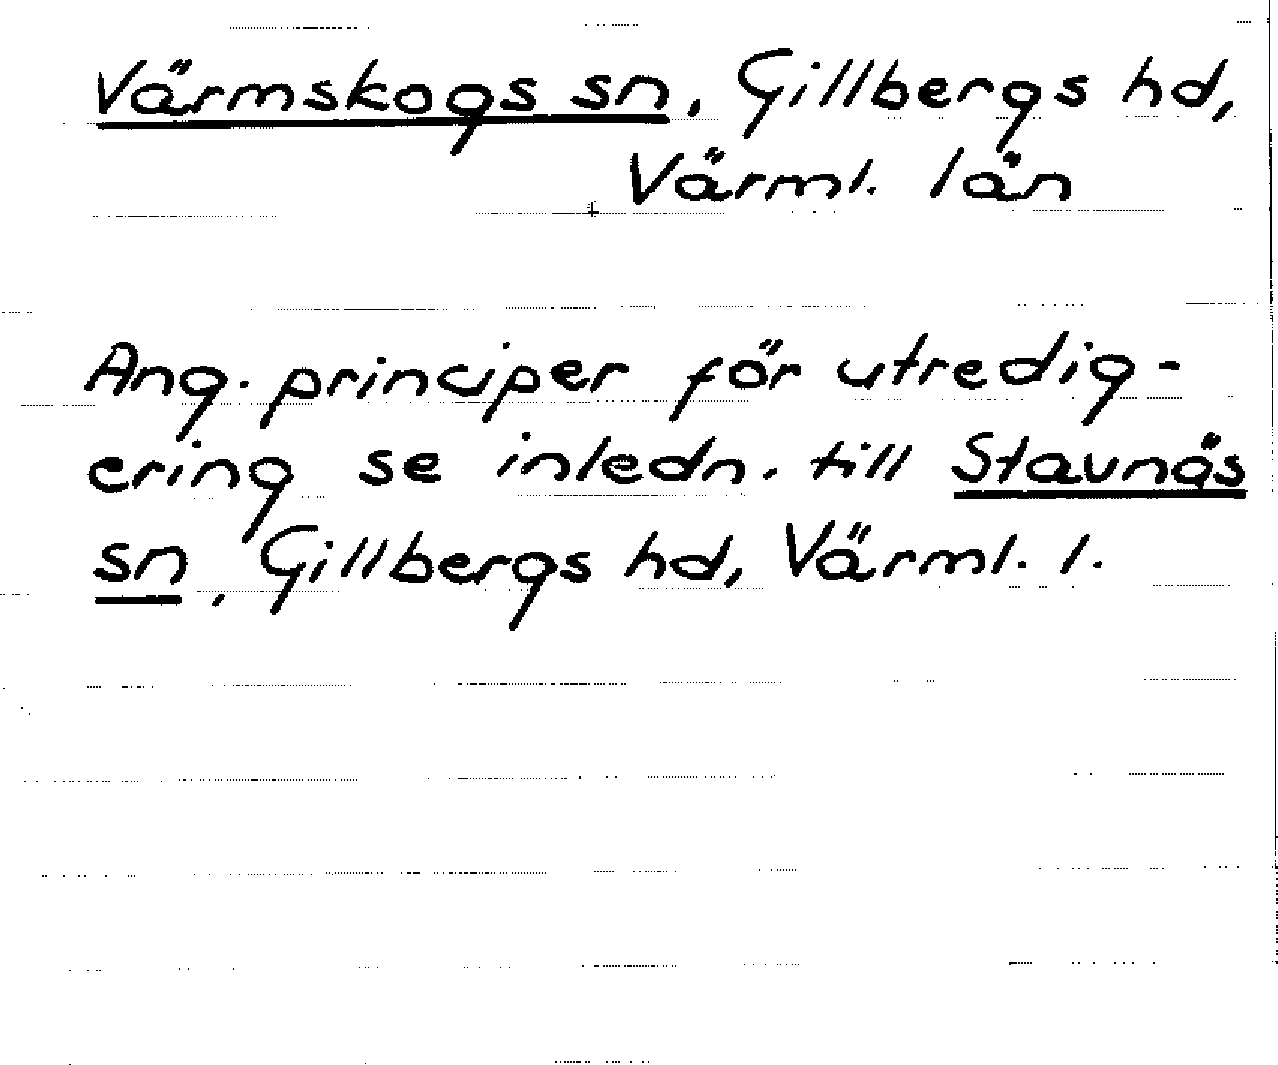 Värmskogs sn, Gillbergs hd,
Värml. län
Ang. principer för utredig-
ering se inledn. till Stavnäs
sn, Gillbergs hd, Värml. l.